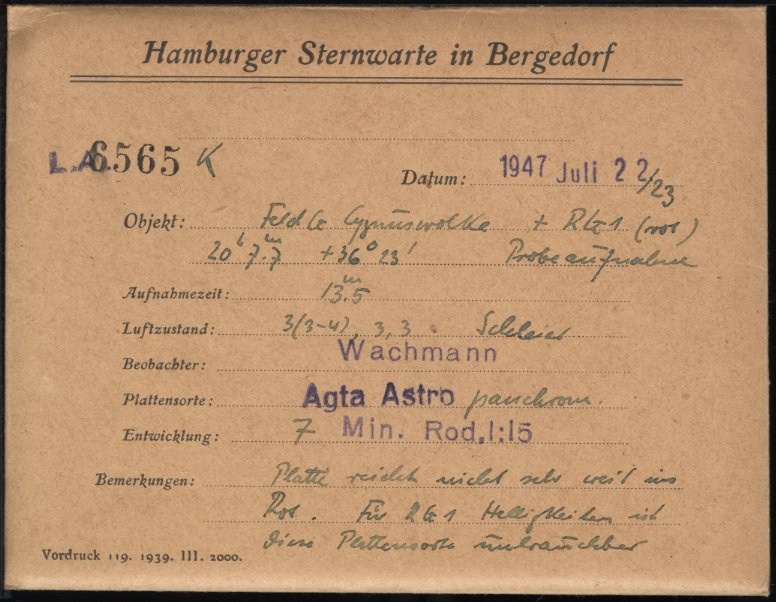 Hamburger Sternwarte in Bergedorf
L.A. 6565 K
Datum: 1947 Juli 22/23
Objekt: Feld G Cygnuswolke + RG1 (rot)
20ʰ 7ᵐ.7 +36° 23' Probeaufnahme
Aufnahmezeit: 13ᵐ.5
Luftzustand: 3(3-4), 3, 3 Schleier
Beobachter: Wachmann
Plattensorte: Agfa Astro panchrom.
Entwicklung: 7 Min. Rod. 1:15
Bemerkungen: Platte reicht nicht sehr weit ins
Rot. Für RG1 Helligkeiten ist
diese Plattensorte unbrauchbar
Vordruck 119. 1939. III. 2000.